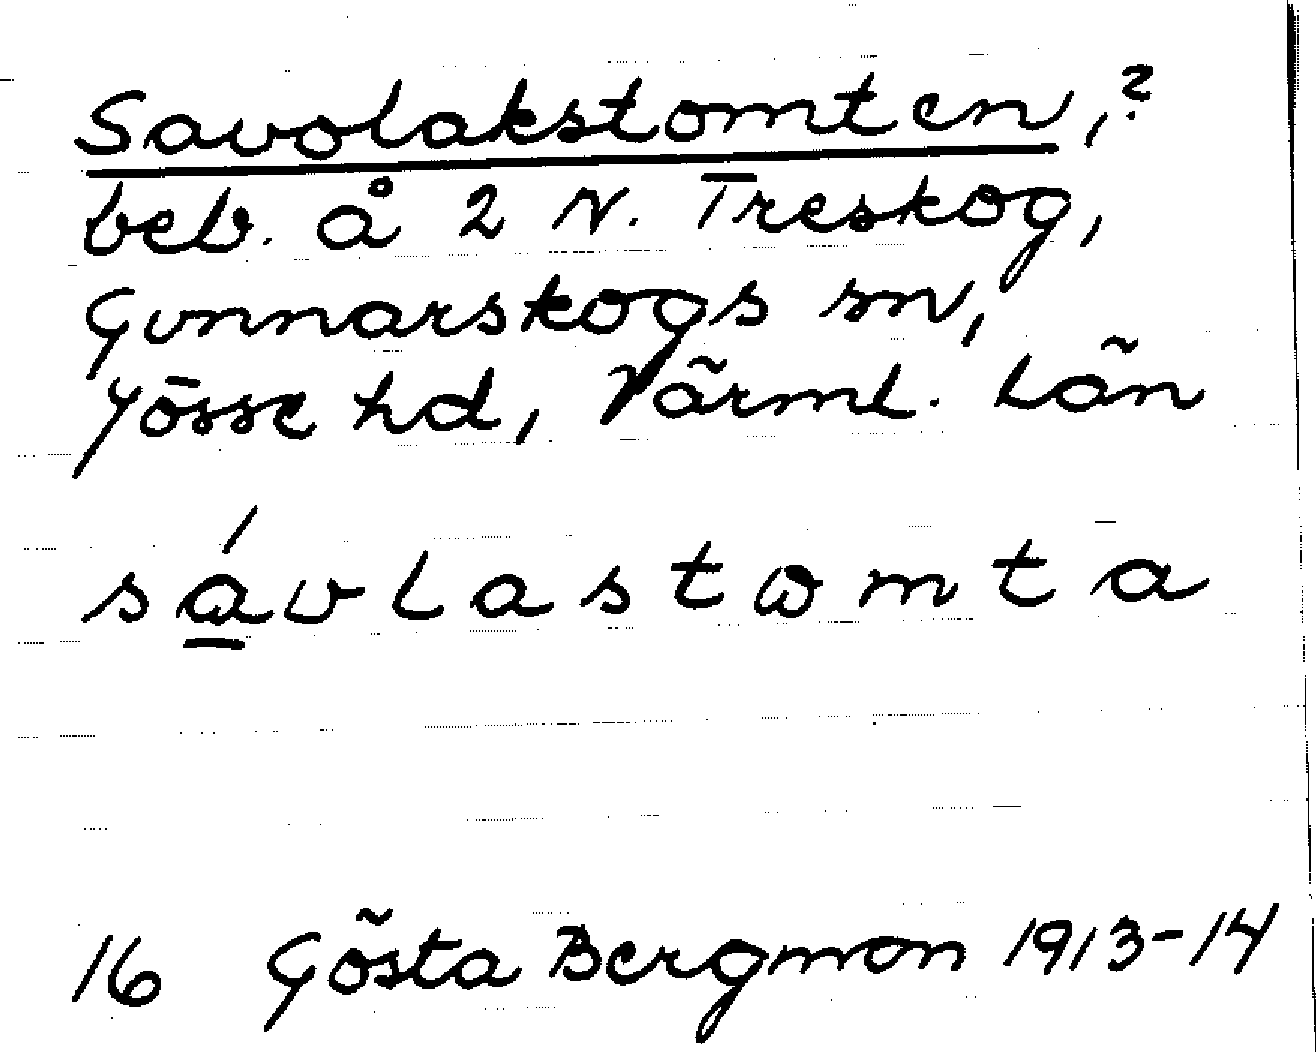 Savolakstomten,?
beb. å 2 N. Treskog,
Gunnarskogs sn,
Jösse hd, Värml. län
sávlastωmta
16 Gösta Bergman 1913-14